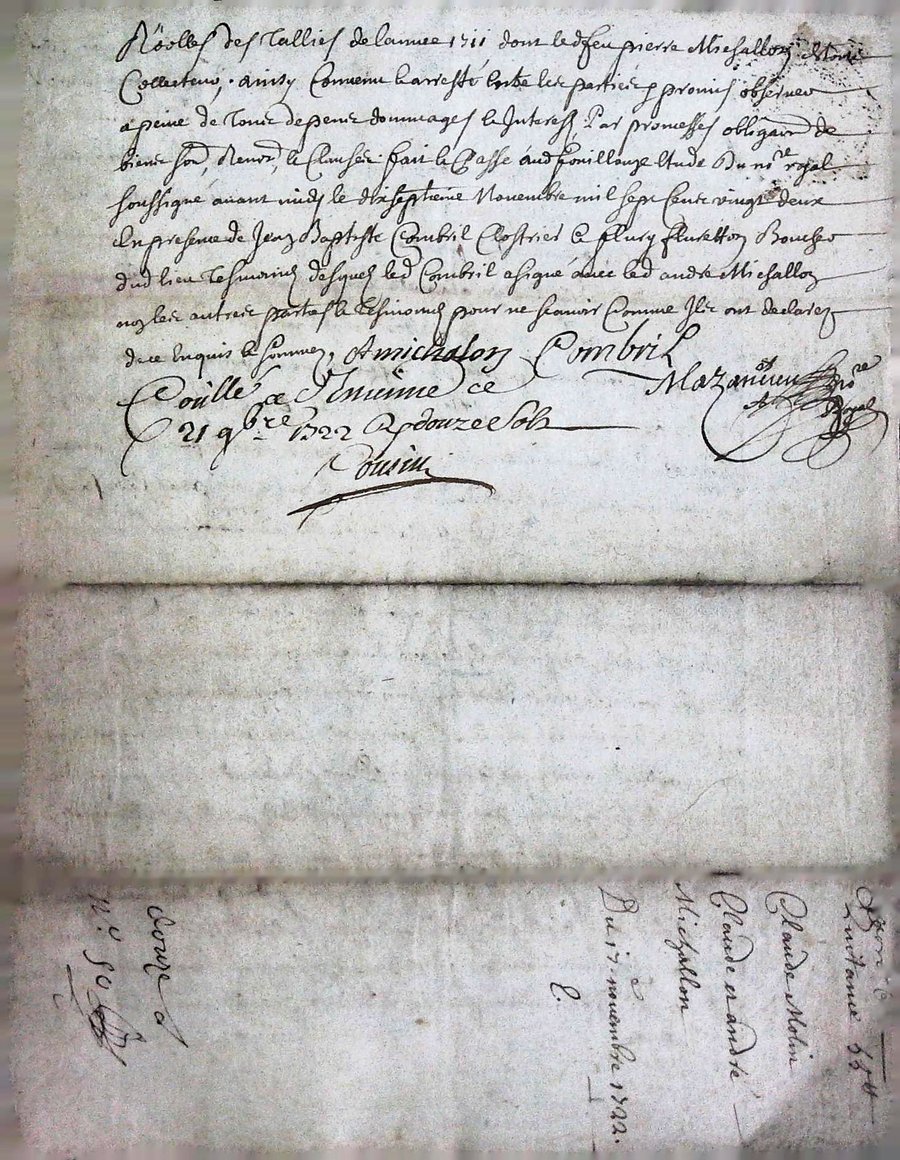 Röolles des Tallies de lannee 1711 dont led feu pierre Michallon estoit
Collecteur, ainsy Convenu & arresté entre les parties p promis observer
a peine de tous depens dommages & Interests Par promesses obligaon de
biens soub, Renon, & Clauses fait & Passé aud fouillouze Etude du no.re royal
soussigné avant midy le dixseptieme Novembre mil sept Cents vingt deux
En presence de Jean Baptiste Combril Clostrier & fleury fluretton Boucher
dud lieu tesmoins desquels led Combril a signé avec led andre Michallon
non les autres parties & tesmoins pour ne scavoir Comme Ils ont declarez
de ce Enquis & sommez,
AMichalon Combril
Mazandieu no.re Royal
Coůllé a St Etienne ce
21 9bre 1722 R douze Sols
Cousin
Quittance 55tt
Claude Molin
Claude et andré
Michallon
Du 17 novembre 1722.
douze s
N.o 50